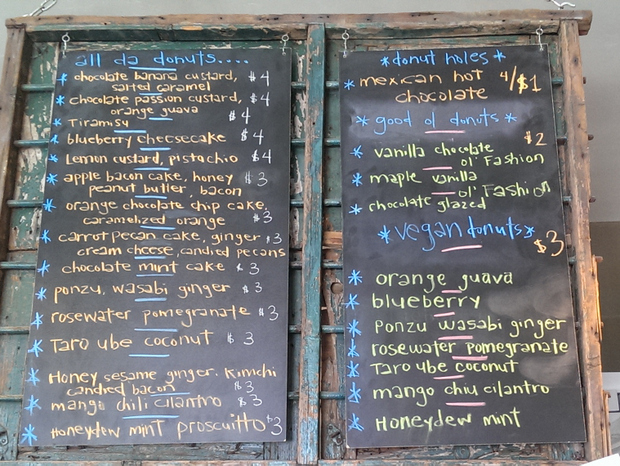 all da donuts....
* chocolate banana custard, $4
salted caramel
* chocolate passion custard, $4
orange guava
* Tiramisu $4
* blueberry cheesecake $4
* Lemon custard, pistachio $4
* apple bacon cake, honey $3
peanut butter, bacon
* orange chocolate chip cake,
caramelized orange $3
* carrot pecan cake, ginger $3
cream cheese, candied pecans
* chocolate mint cake $3
* ponzu, wasabi ginger $3
* rosewater pomegranate $3
* Taro ube coconut $3
* Honey sesame ginger, Kimchi
candied bacon $3
* mango chili cilantro $3
* Honeydew mint proscuitto $3
* donut holes *
* mexican hot 4/$1
chocolate
* good ol donuts *
$2
* vanilla chocolate
ol' Fashion
* maple vanilla
ol' Fashion
* chocolate glazed
* vegan donuts * $3
* orange guava
* blueberry
* Ponzu wasabi ginger
* rosewater pomegranate
* Taro ube coconut
* mango chili cilantro
* Honeydew mint